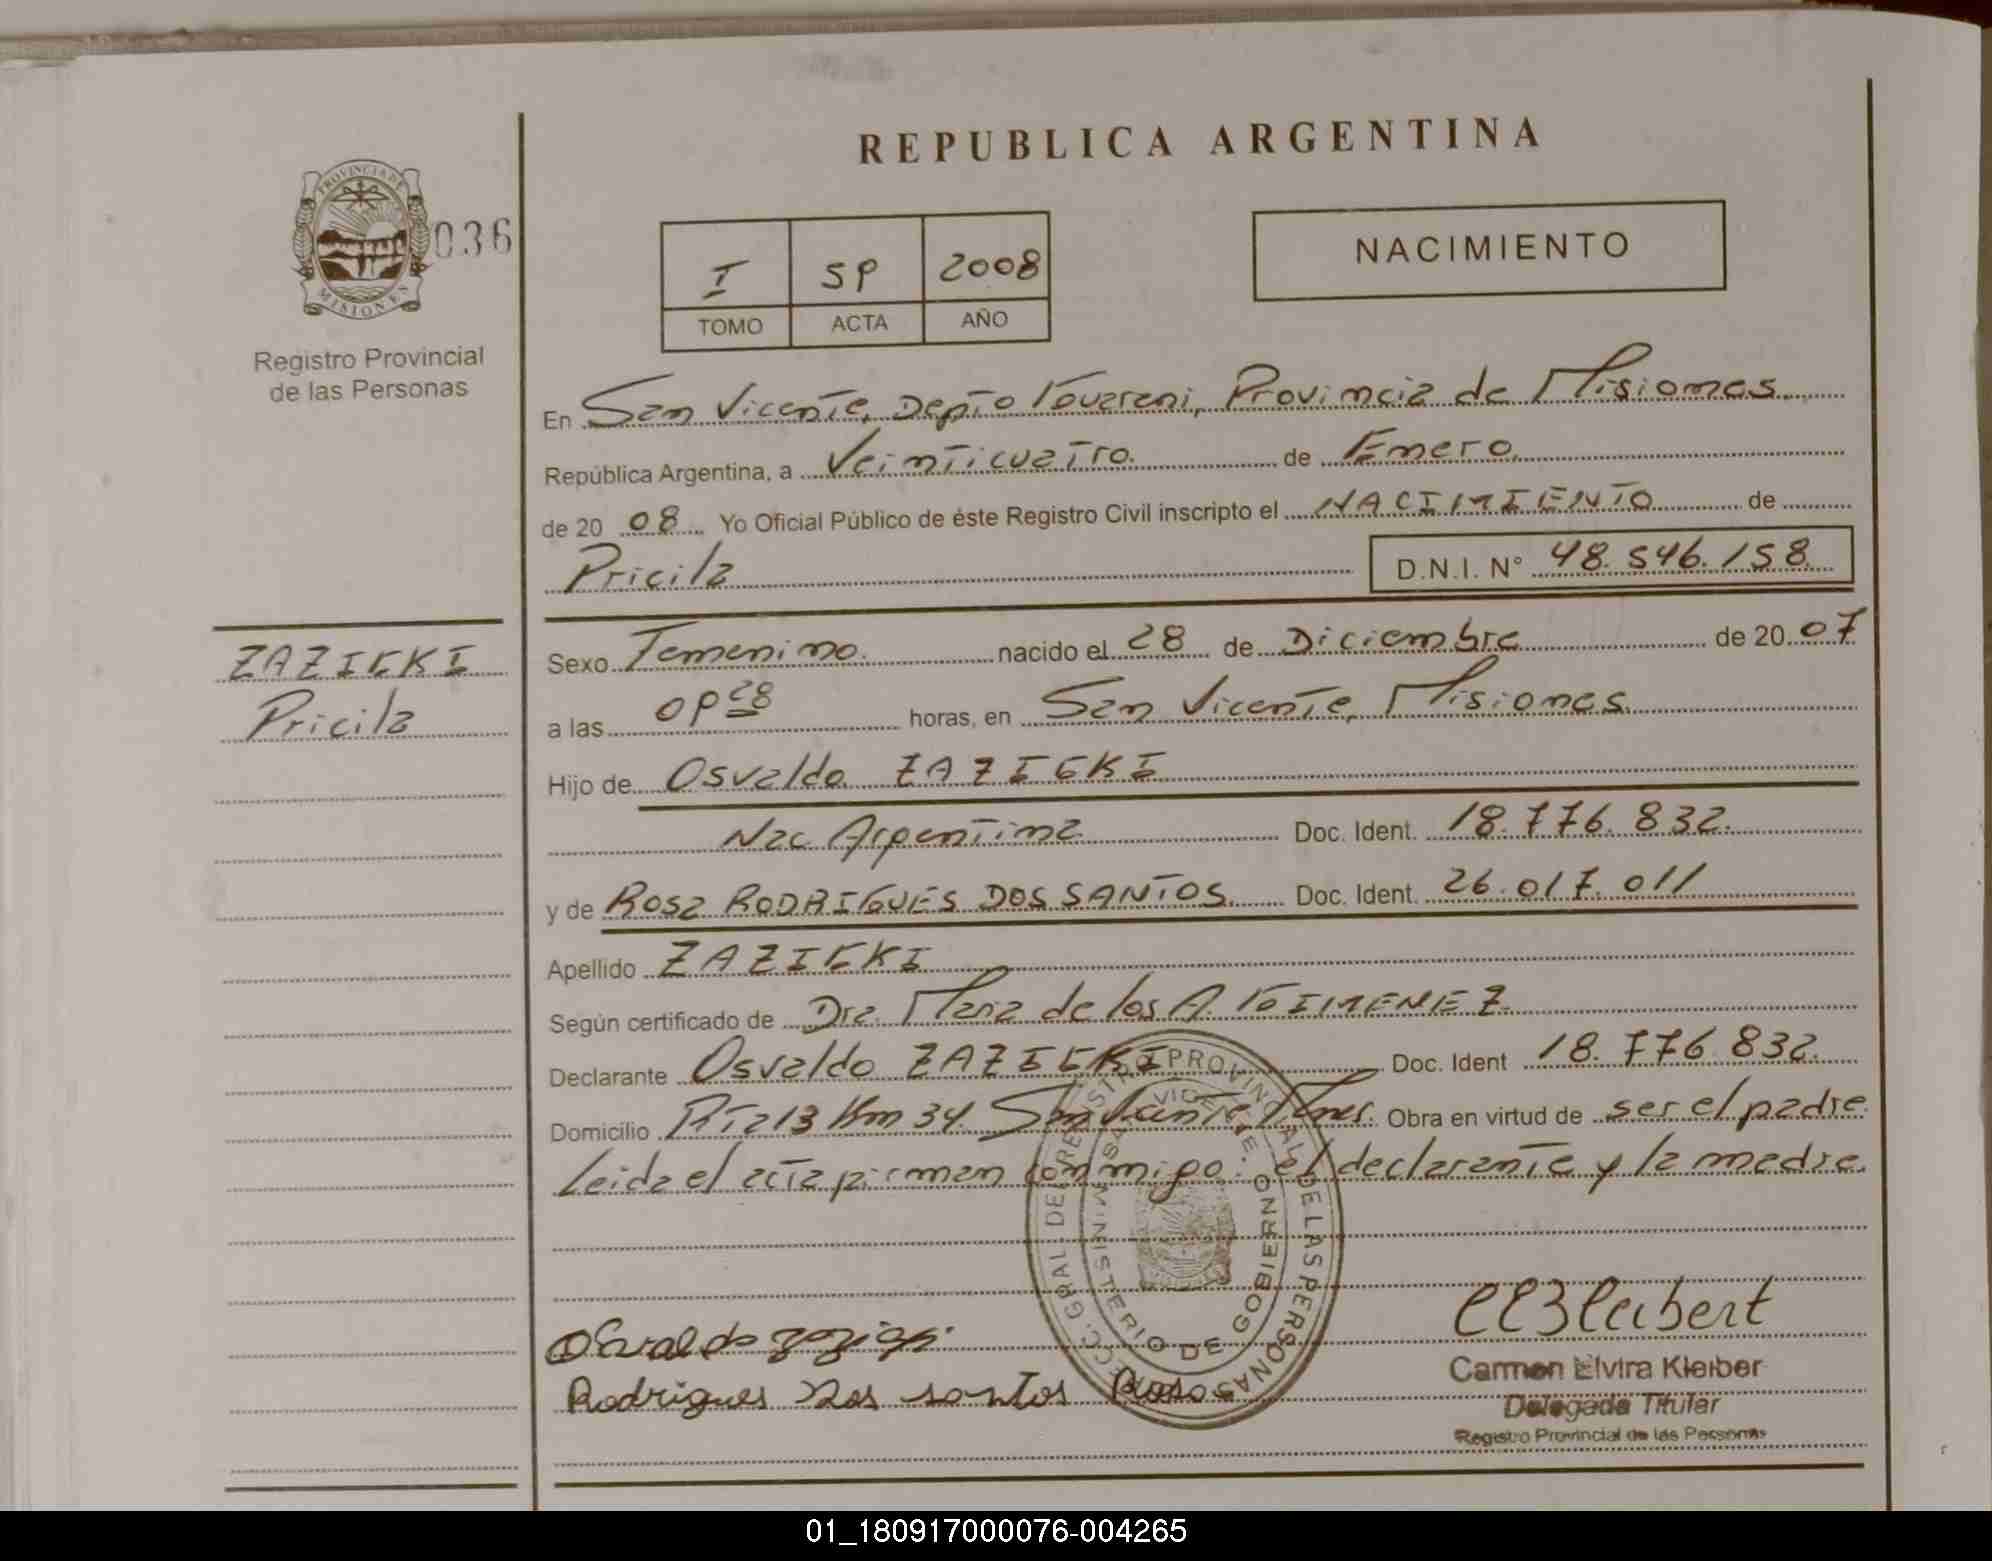 REPUBLICA ARGENTINA
PROVINCIA DE
MISIONES
036
Registro Provincial
de las Personas
I 59 2008
TOMO ACTA AÑO
NACIMIENTO
En San Vicente, Depto Guarani, Provincia de Misiones
República Argentina, a Veinticuatro de Enero
de 20 08 Yo Oficial Público de éste Registro Civil inscripto el NACIMIENTO de
Pricila D.N.I. N° 48.546.158
ZAZIEKI
Pricila
Sexo Femenino nacido el 28 de Diciembre de 20 07
a las 09 28 horas, en San Vicente, Misiones
Hijo de Osvaldo ZAZIEKI
Nac Argentina Doc. Ident. 18.776.832
y de Rosa RODRIGUES DOS SANTOS Doc. Ident. 26.017.011
Apellido ZAZIEKI
Según certificado de Dra. Maria de los A. GIMENEZ
Declarante Osvaldo ZAZIEKI Doc. Ident 18.776.832
Domicilio Rta 13 Km 34. San Vicente, Mnes. Obra en virtud de ser el padre.
Leida el acta firman conmigo: el declarante y la madre.
DIRECC. GRAL. DE REGISTRO PROVINCIAL DE LAS PERSONAS
MINISTERIO DE GOBIERNO
SAN VICENTE
Osvaldo
Rodrigues Dos santos Rosa
Carmen Elvira Kleiber
Delegada Titular
Registro Provincial de las Personas
01_180917000076-004265